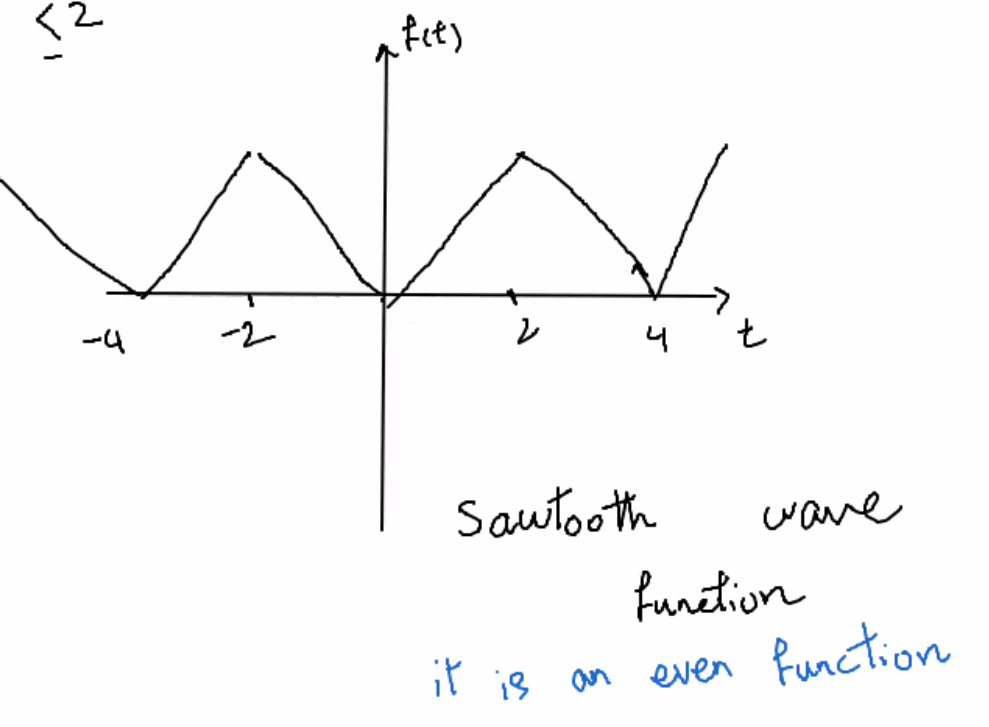 ≤2
f(t)
-4 -2 2 4 t
Sawtooth wave
function
it is an even function